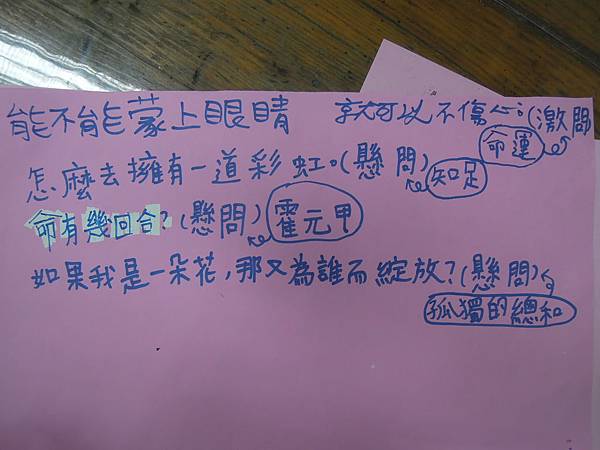 能不能蒙上眼睛 就可以不傷心?(激問)
命運
怎麼去擁有一道彩虹。(懸問)
知足
命有幾回合?(懸問)
霍元甲
如果我是一朵花,那又為誰而綻放?(懸問)
孤獨的總和